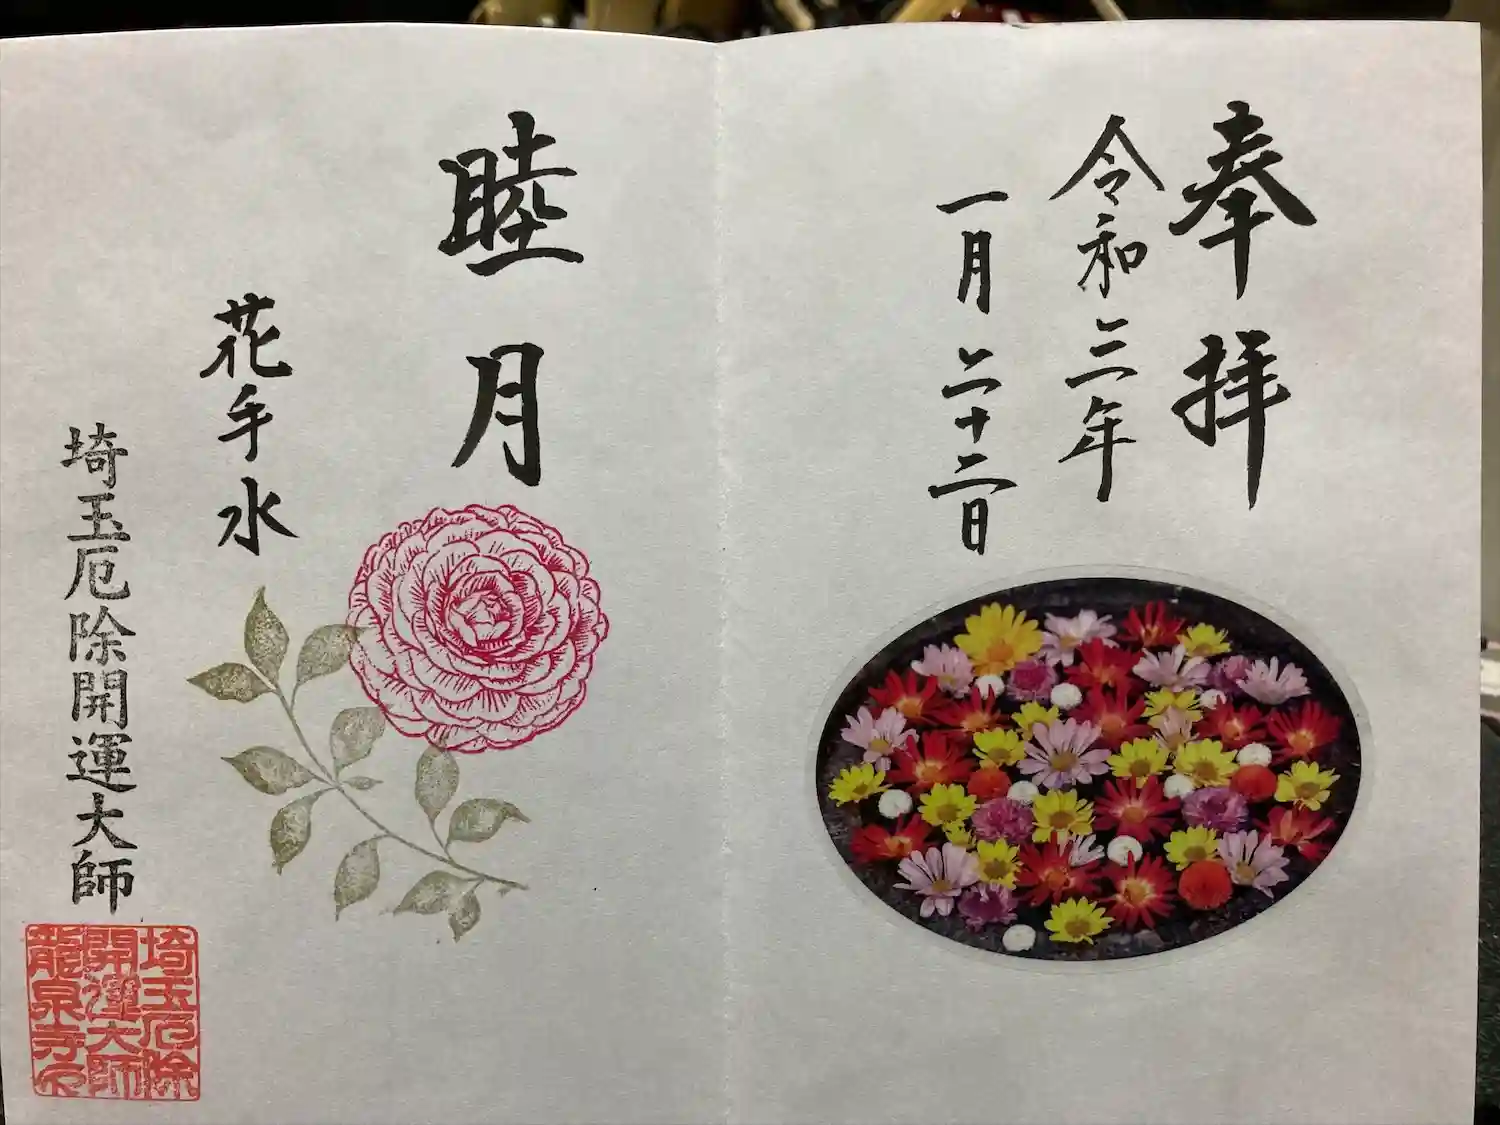 奉拝
令和三年
一月二十二日
睦月
花手水
埼玉厄除開運大師
埼玉厄除
開運大師
龍泉寺印